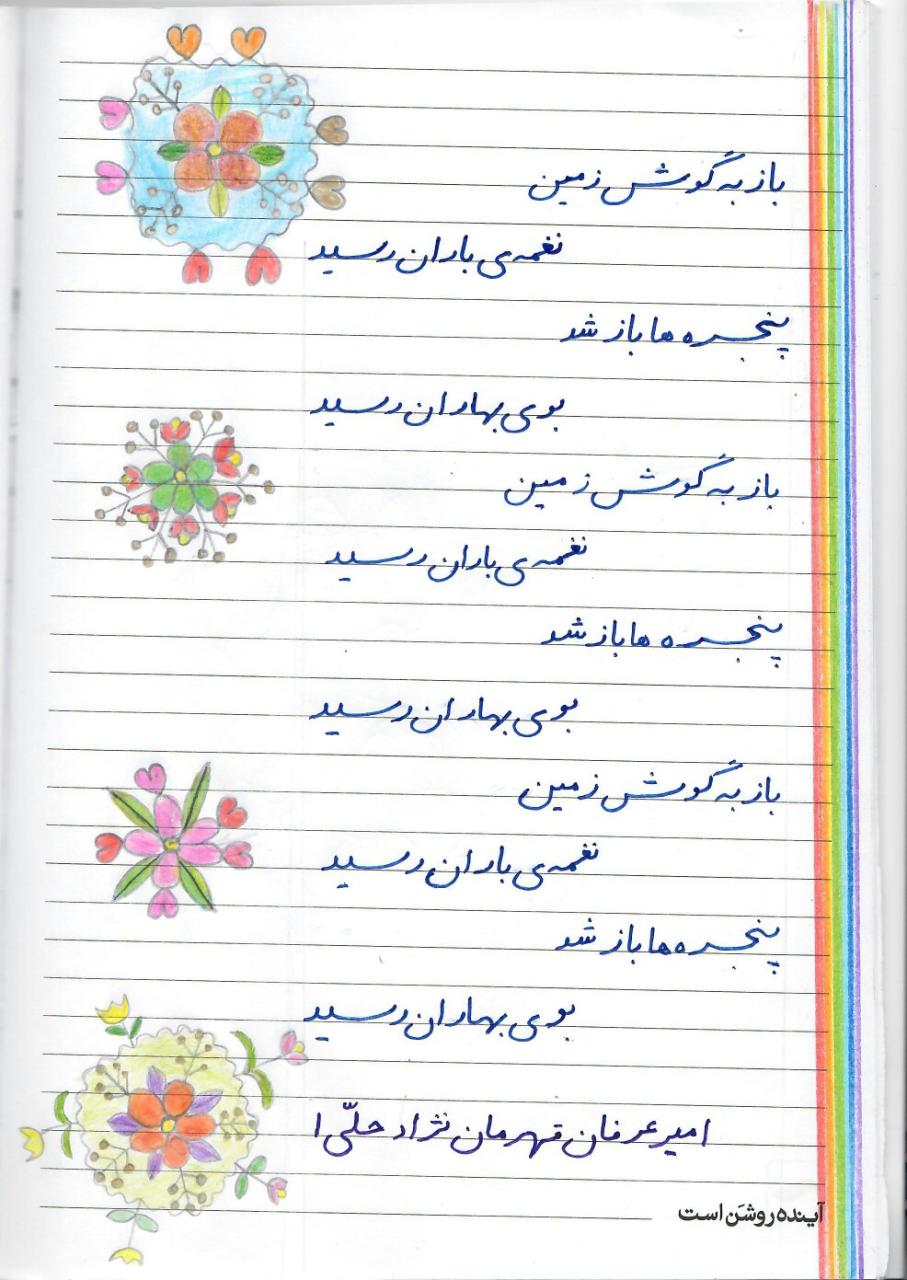 باز به گوش زمین
نغمه‌ی باران رسید
پنجره ها باز شد
بوی بهاران رسید
باز به گوش زمین
نغمه‌ی باران رسید
پنجره ها باز شد
بوی بهاران رسید
باز به گوش زمین
نغمه‌ی باران رسید
پنجره ها باز شد
بوی بهاران رسید
امیرعرفان قهرمان نژاد حلّی ا
آینده روشَن است